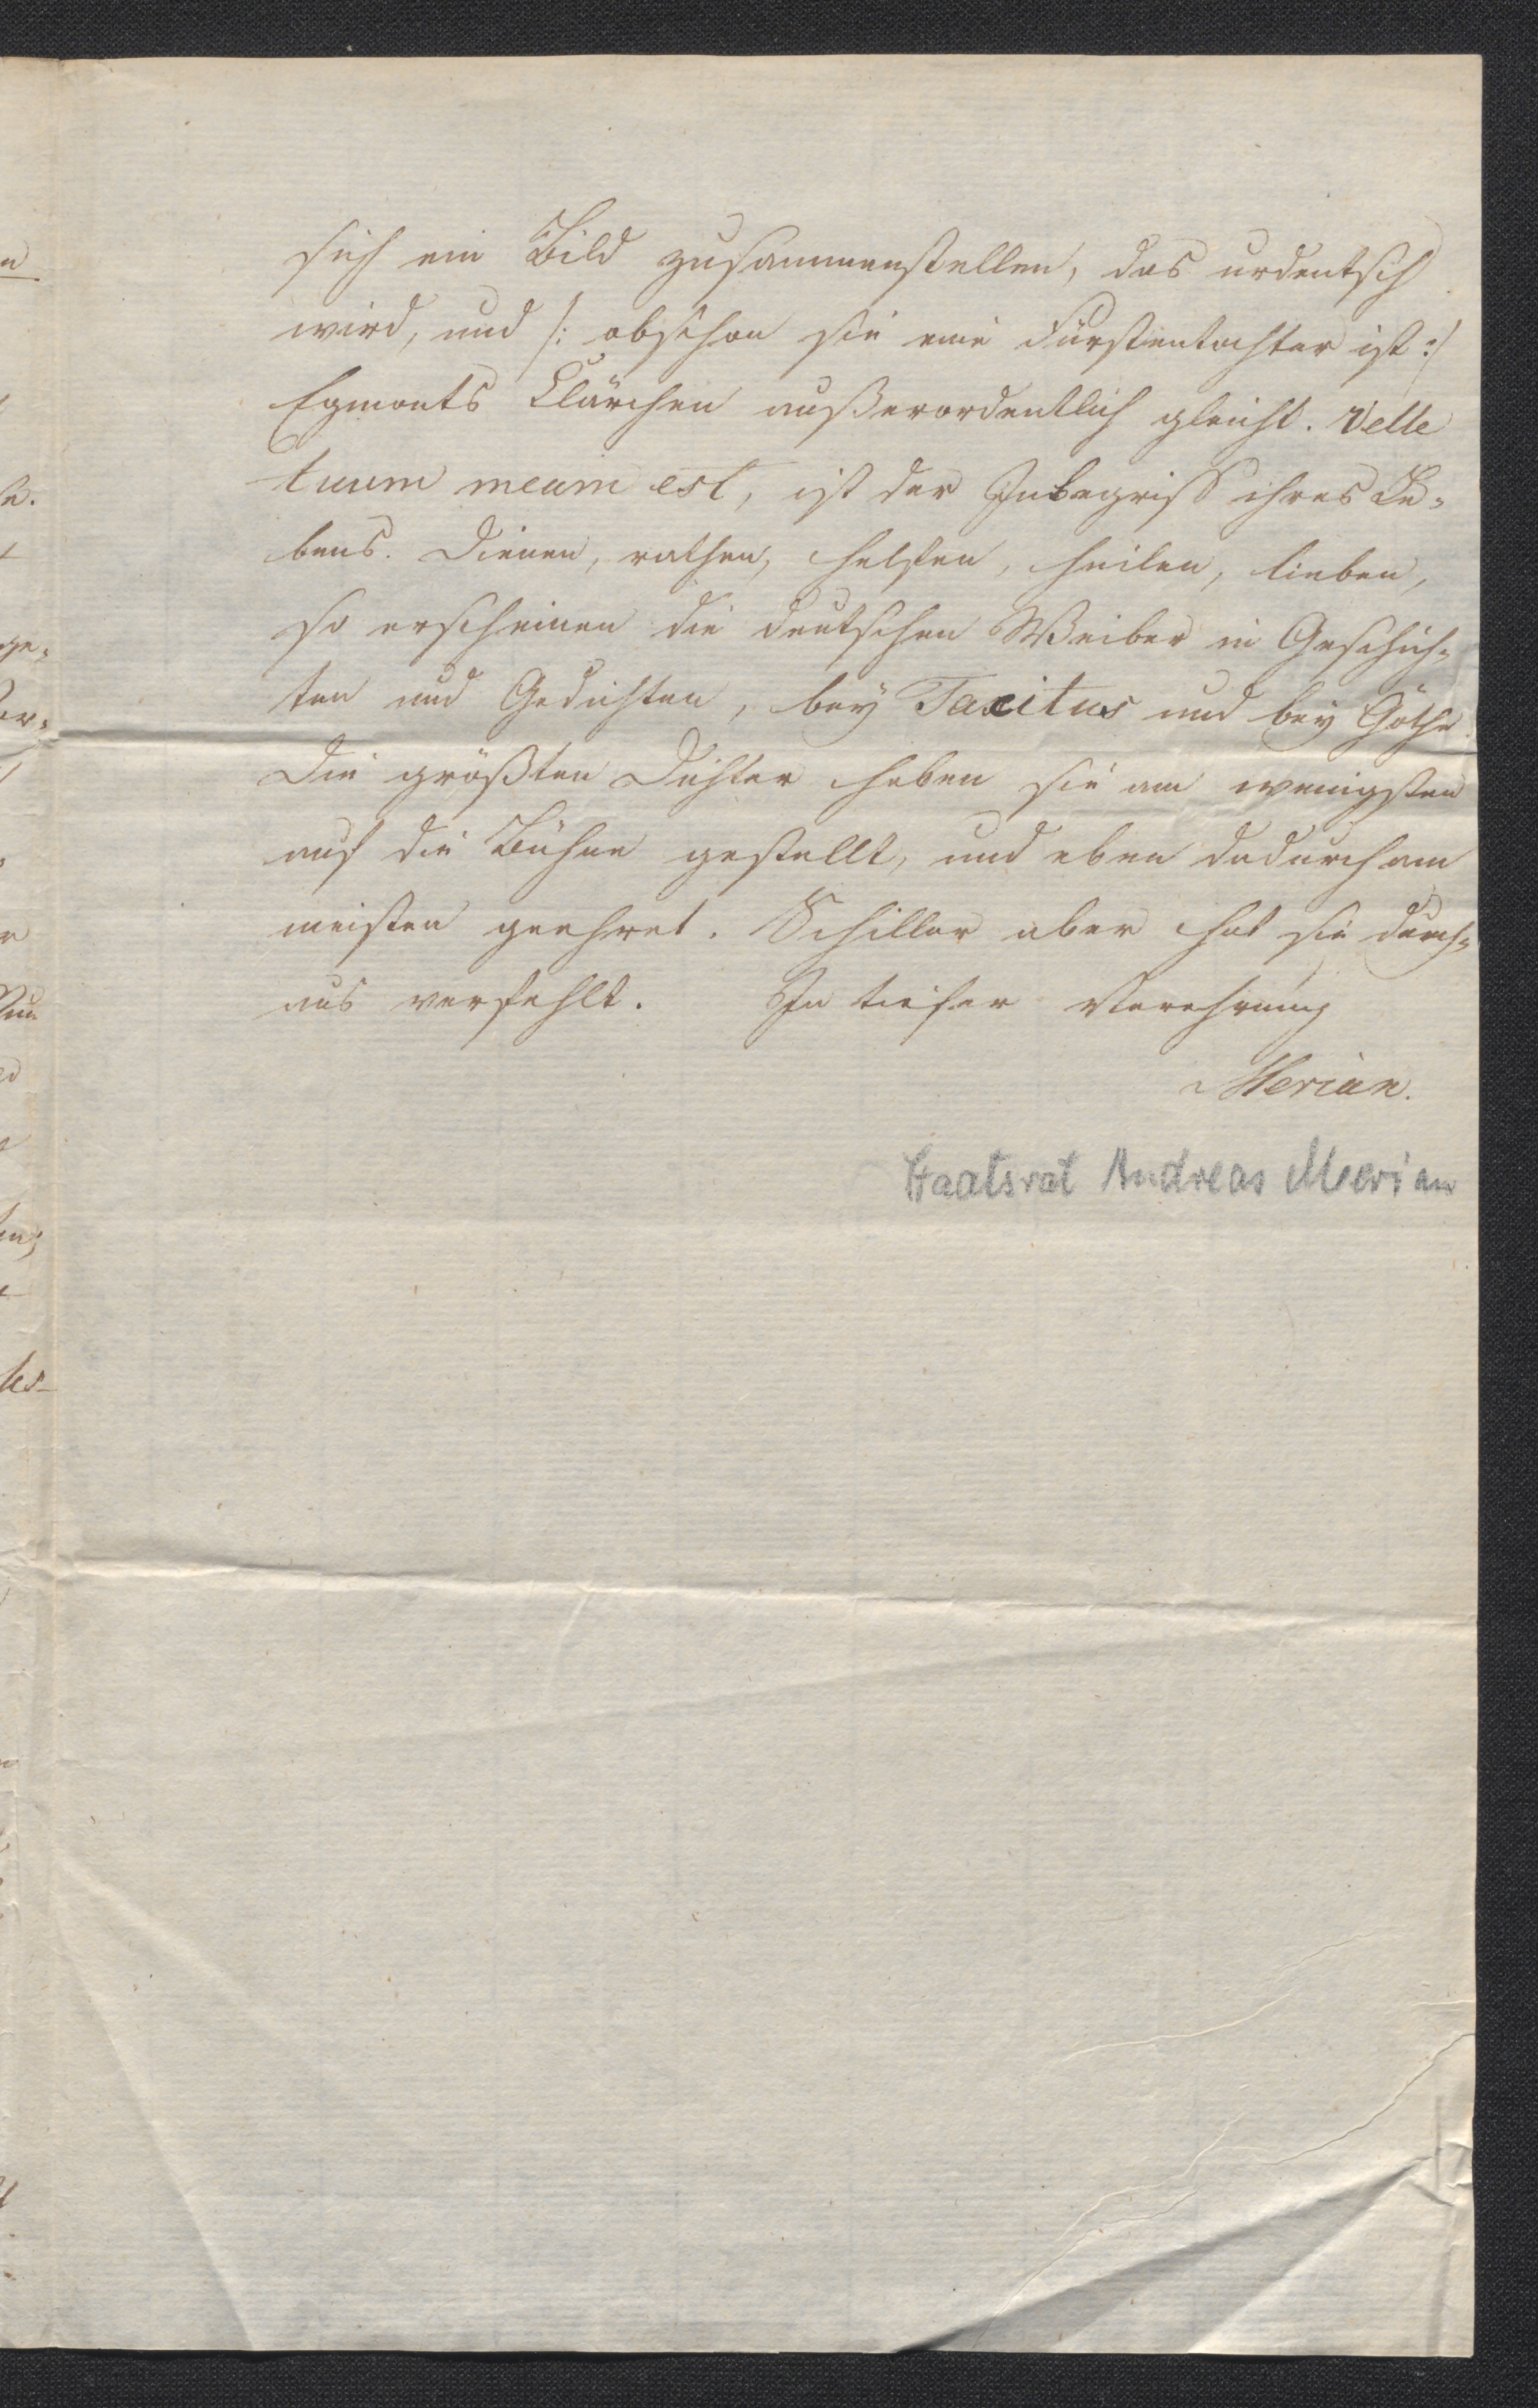 sich ein Bild zusammenstellen, das urdeutsch
wird, und /: obschon sie eine Fürstentochter ist :/
Egmonts Clärchen außerordentlich gleicht. Velle
tuum meum est, ist der Inbegriff ihres Le=
bens. Dienen, rathen, helfen, heilen, lieben,
so erscheinen die deutschen Weiber in Geschich=
ten und Gedichten, bey Tacitus und bey Göthe.
Die größten Dichter haben sie am wenigsten
auf die Bühne gestellt, und eben dadurch am
meisten geehret. Schiller aber hat sie durch=
aus verfehlt. In tiefer Verehrung
Merian.
Staatsrat Andreas Merian